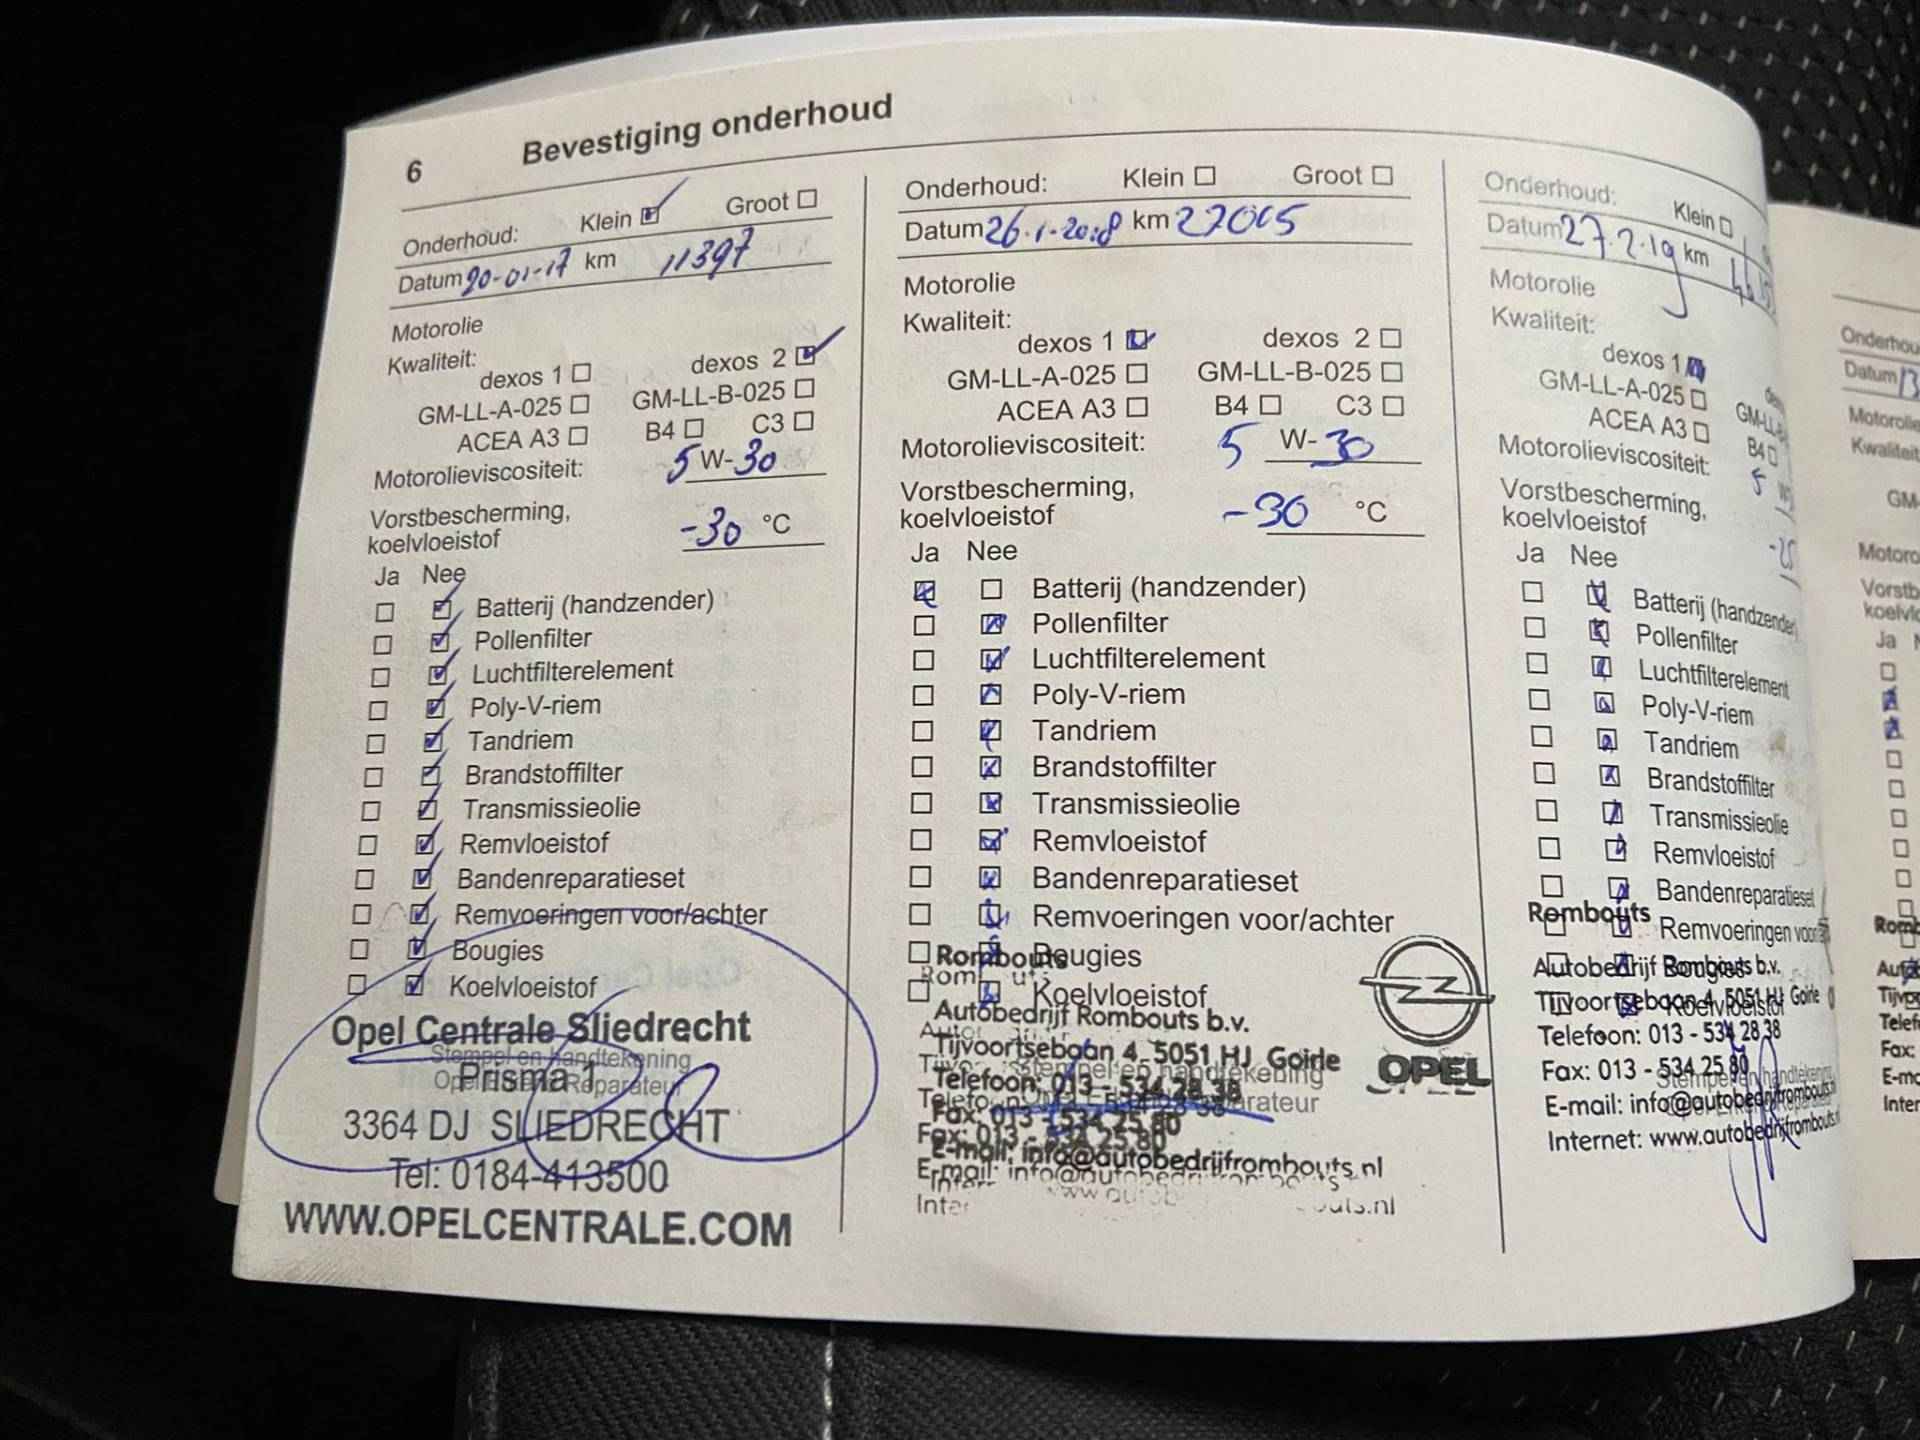 6 Bevestiging onderhoud
Onderhoud: Klein Groot
Datum 20-01-17 km 11397
Motorolie
Kwaliteit:
dexos 1 dexos 2
GM-LL-A-025 GM-LL-B-025
ACEA A3 B4 C3
Motorolieviscositeit: 5 W-30
Vorstbescherming,
koelvloeistof -30 °C
Ja Nee
Batterij (handzender)
Pollenfilter
Luchtfilterelement
Poly-V-riem
Tandriem
Brandstoffilter
Transmissieolie
Remvloeistof
Bandenreparatieset
Remvoeringen voor/achter
Bougies
Koelvloeistof
Opel Centrale Sliedrecht
Stempel en handtekening
Prisma 1
3364 DJ SLIEDRECHT
Tel: 0184-413500
WWW.OPELCENTRALE.COM
Onderhoud: Klein Groot
Datum 26-1-2018 km 27005
Motorolie
Kwaliteit:
dexos 1 dexos 2
GM-LL-A-025 GM-LL-B-025
ACEA A3 B4 C3
Motorolieviscositeit: 5 W-30
Vorstbescherming,
koelvloeistof -30 °C
Ja Nee
Batterij (handzender)
Pollenfilter
Luchtfilterelement
Poly-V-riem
Tandriem
Brandstoffilter
Transmissieolie
Remvloeistof
Bandenreparatieset
Remvoeringen voor/achter
Bougies
Koelvloeistof
Rombouts
Autobedrijf Rombouts b.v.
Tijvoortsebaan 4, 5051 HJ Goirle
Telefoon: 013 - 534 28 38
Fax: 013 - 534 25 80
E-mail: info@autobedrijfrombouts.nl
OPEL
Onderhoud: Klein
Datum 27-2-19 km
Motorolie
Kwaliteit:
dexos 1
GM-LL-A-025
ACEA A3 B4
Motorolieviscositeit: 5
Vorstbescherming,
koelvloeistof -25
Ja Nee
Batterij (handzender)
Pollenfilter
Luchtfilterelement
Poly-V-riem
Tandriem
Brandstoffilter
Transmissieolie
Remvloeistof
Bandenreparatieset
Remvoeringen
Bougies
Koelvloeistof
Rombouts
Autobedrijf Rombouts b.v.
Tijvoortsebaan 4, 5051 HJ Goirle
Telefoon: 013 - 534 28 38
Fax: 013 - 534 25 80
Stempel en handtekening
E-mail: info@autobedrijfrombouts.nl
Internet: www.autobedrijfrombouts.nl
Datum
Motorolie
Kwaliteit
Ja
Fax: